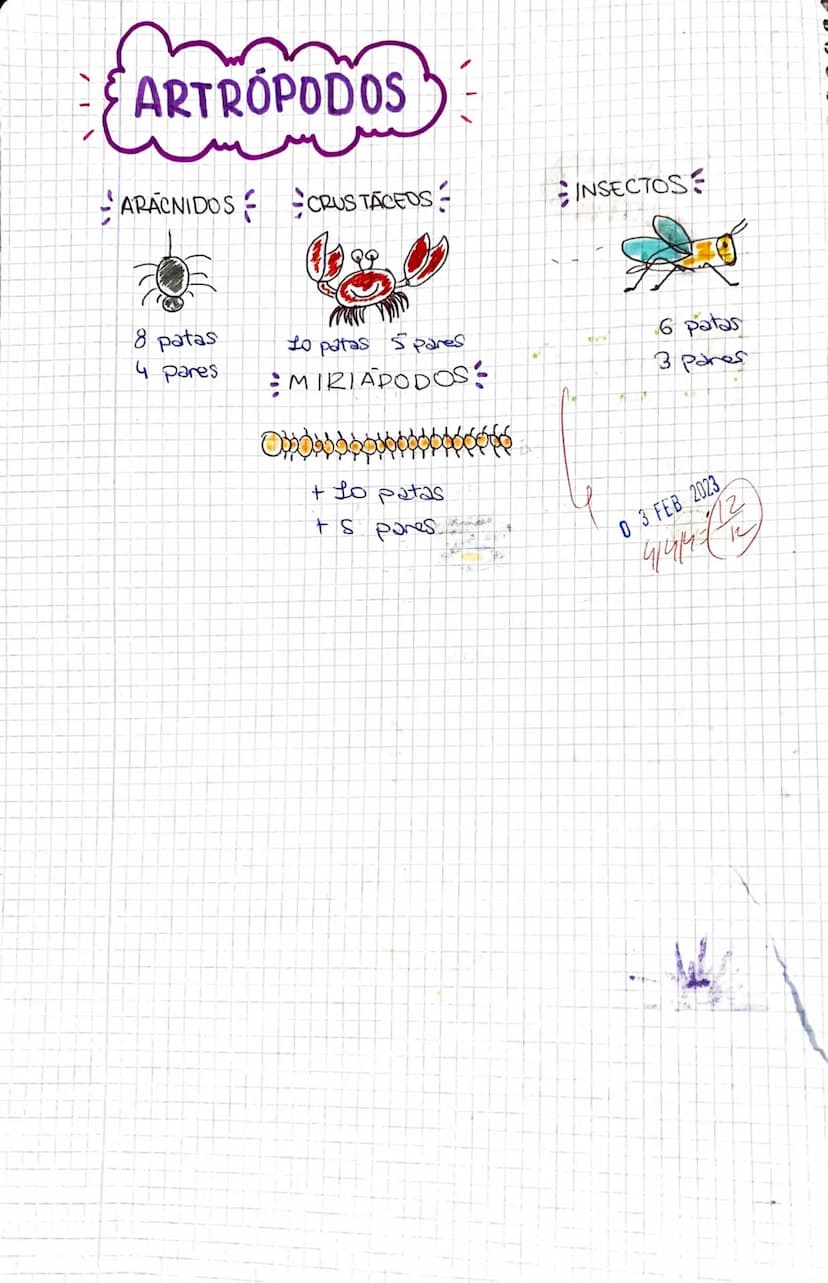 ARTRÓPODOS
ARÁCNIDOS
8 patas
4 pares
CRUSTÁCEOS
10 patas 5 pares
INSECTOS
6 patas
3 pares
MIRIÁPODOS
+ 10 patas
+ 5 pares
0 3 FEB 2023
4/4/4=12/12